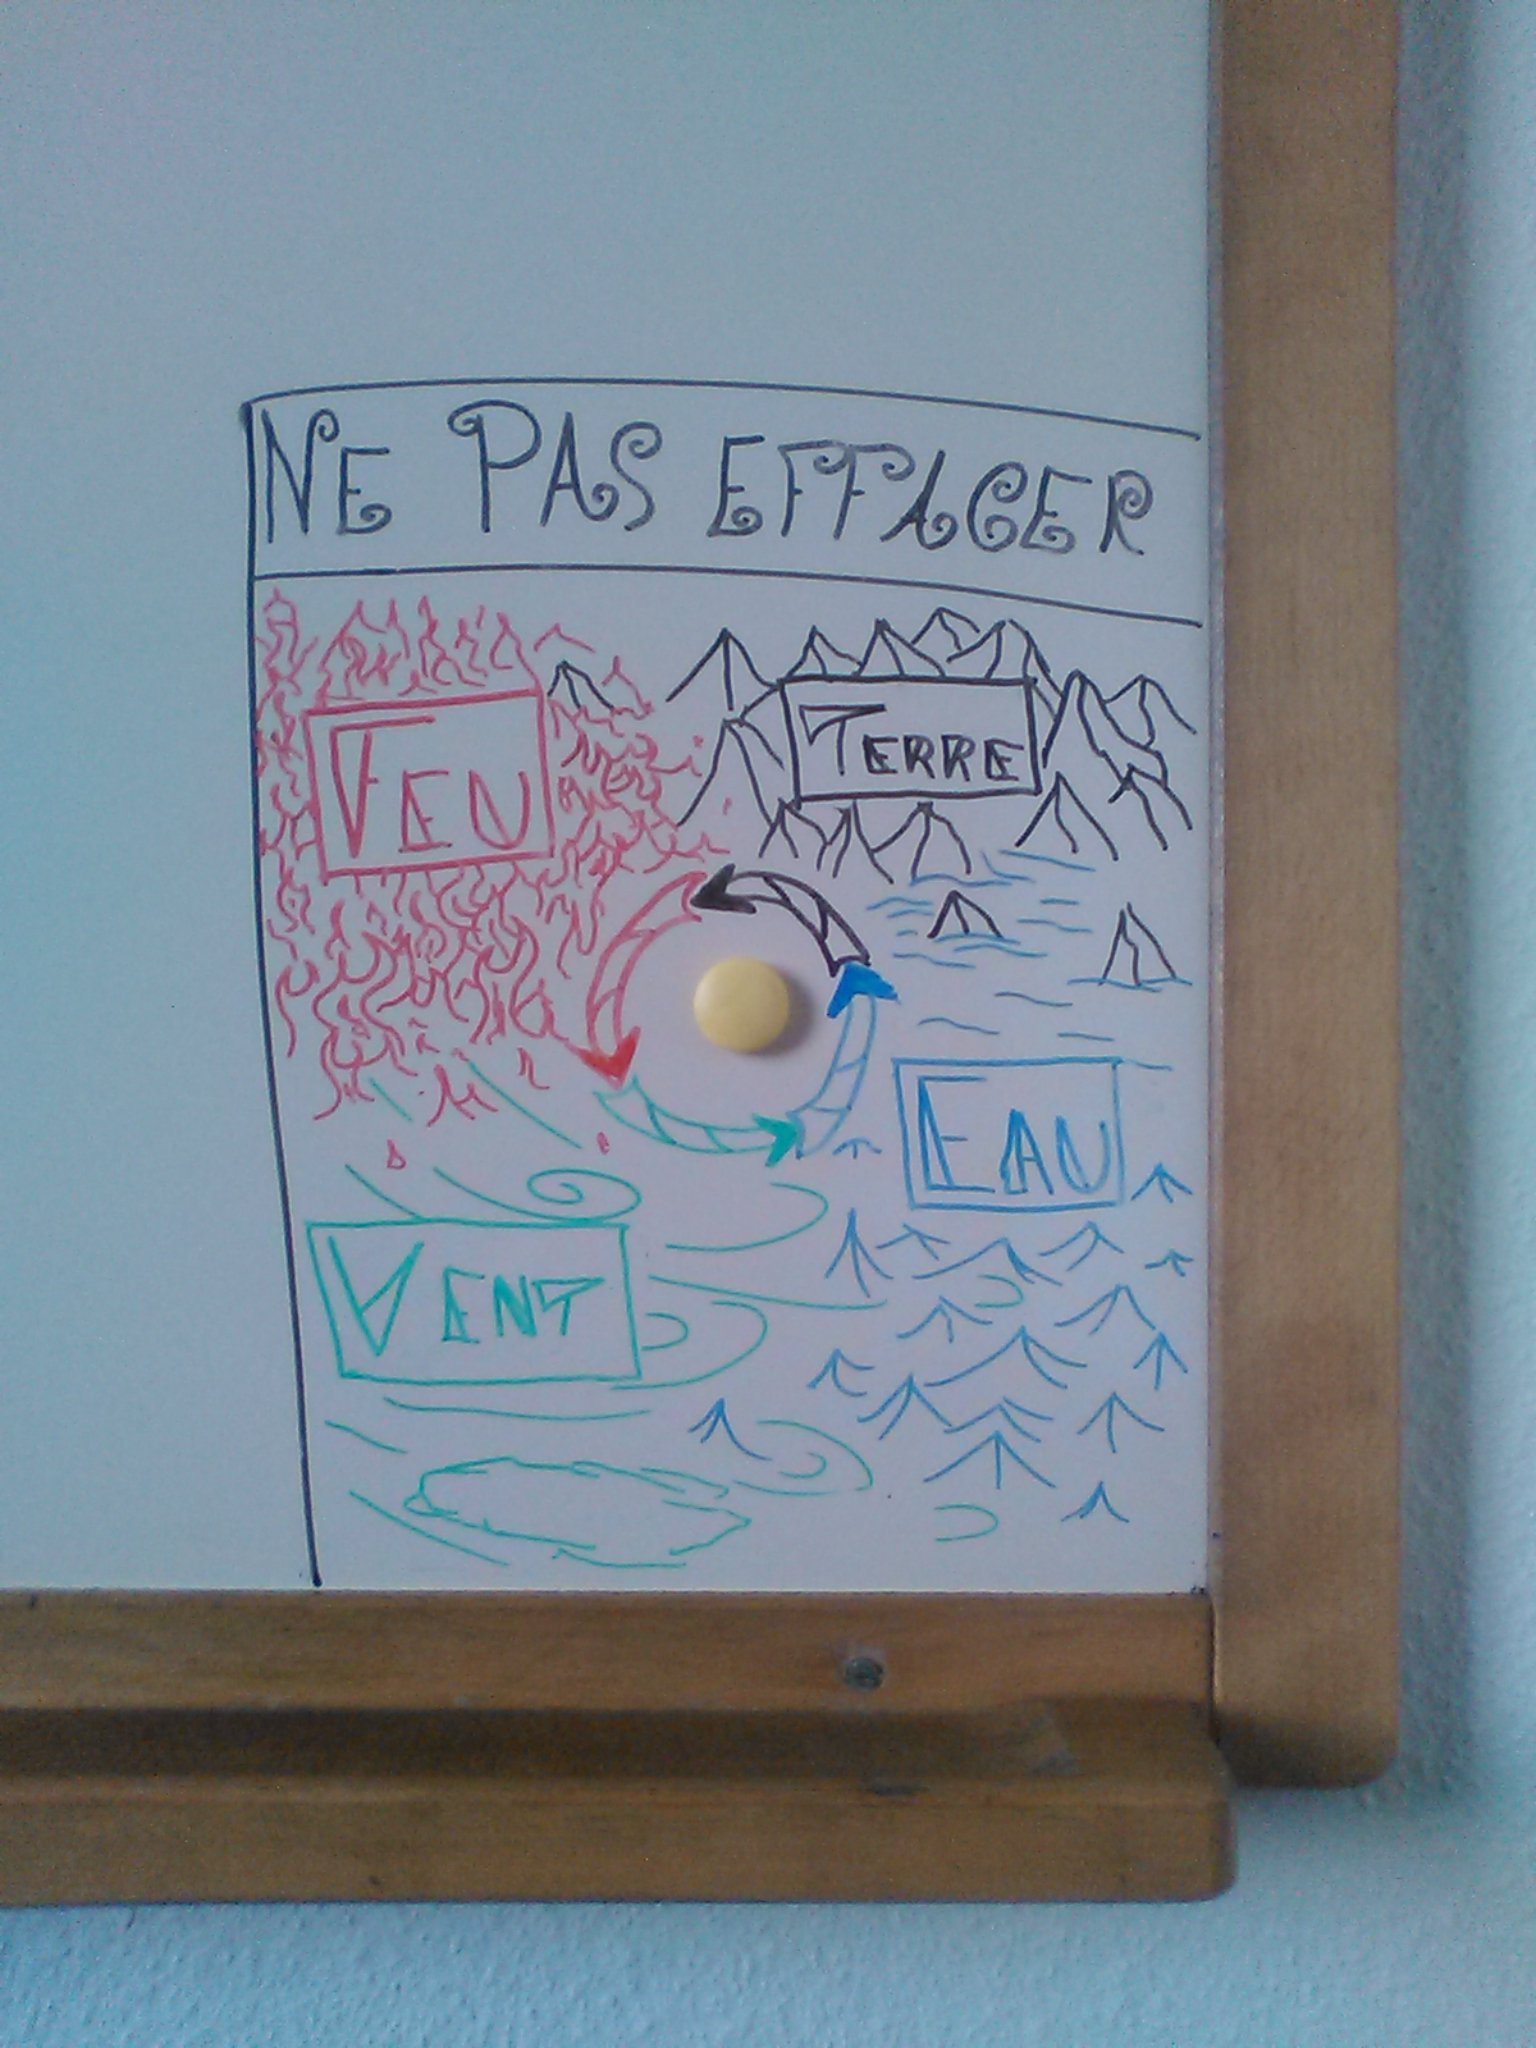 NE PAS EFFACER
FEU
TERRE
EAU
VENT